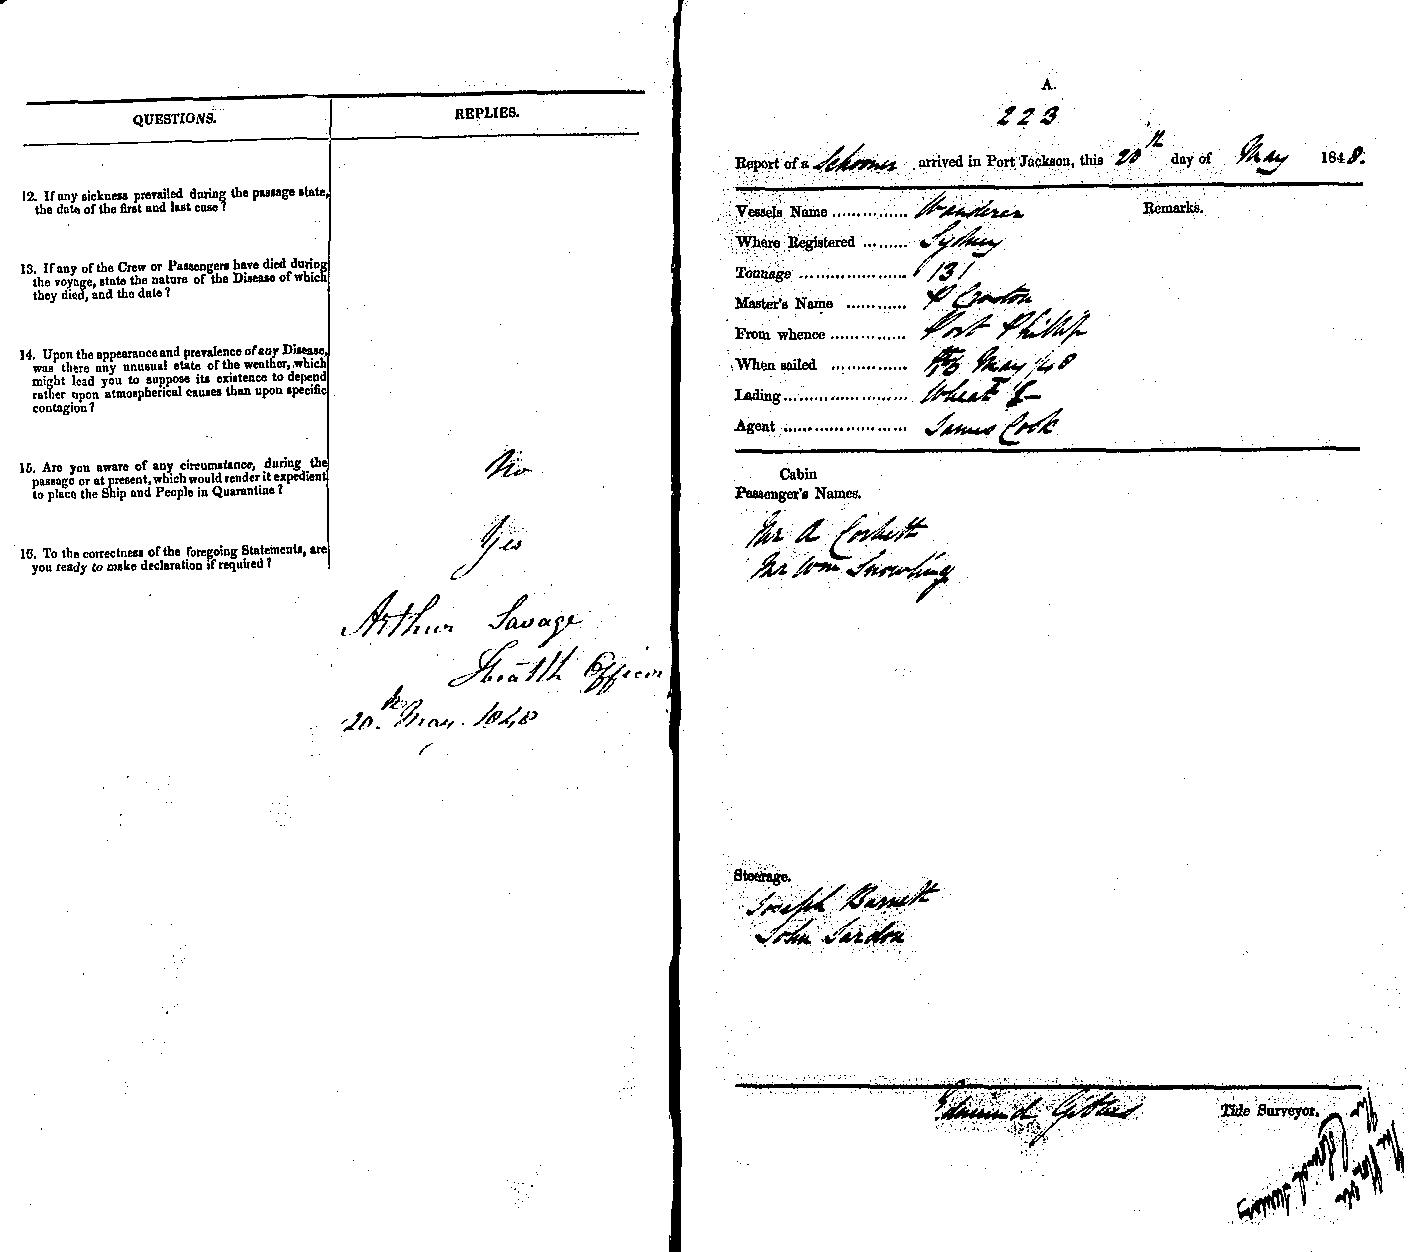 QUESTIONS.
REPLIES.
12. If any sickness prevailed during the passage state,
the date of the first and last case?
13. If any of the Crew or Passengers have died during
the voyage, state the nature of the Disease of which
they died, and the date?
14. Upon the appearance and prevalence of any Disease,
was there any unusual state of the weather, which
might lead you to suppose its existence to depend
rather upon atmospherical causes than upon specific
contagion?
15. Are you aware of any circumstance, during the
passage or at present, which would render it expedient
to place the Ship and People in Quarantine?
No
16. To the correctness of the foregoing Statements, are
you ready to make declaration if required?
Yes
Arthur Savage
Health Officer
20th May 1848
A.
223
Report of a Schooner arrived in Port Jackson, this 20th day of May 1848.
Vessels Name .............. Wanderer
Remarks.
Where Registered ........ Sydney
Tonnage .................... 131
Master's Name ............ P
From whence .............. Port Phillip
When sailed .............. May /48
Lading....................... Wheat &
Agent ....................... James Cook
Cabin
Passenger's Names.
Mr A Corbett
Mr Wm Snowling
Steerage.
Joseph Barnett
John
Edmund Gibbes Tide Surveyor.